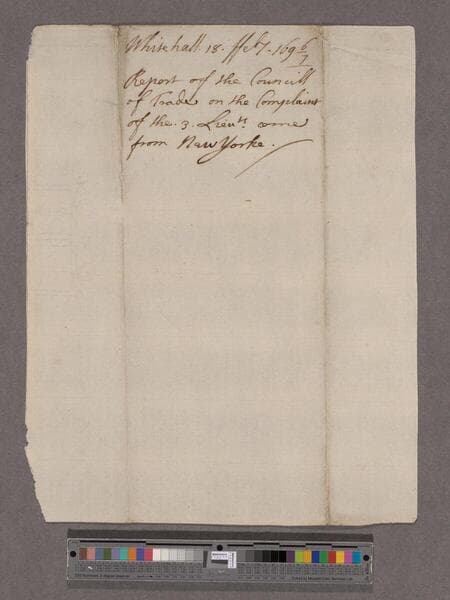 Whitehall. 18. ffeb: 169 6/7
Report of the Councill
of Trade on the Complaint
of the .3. Lieuts. come
from New Yorke.